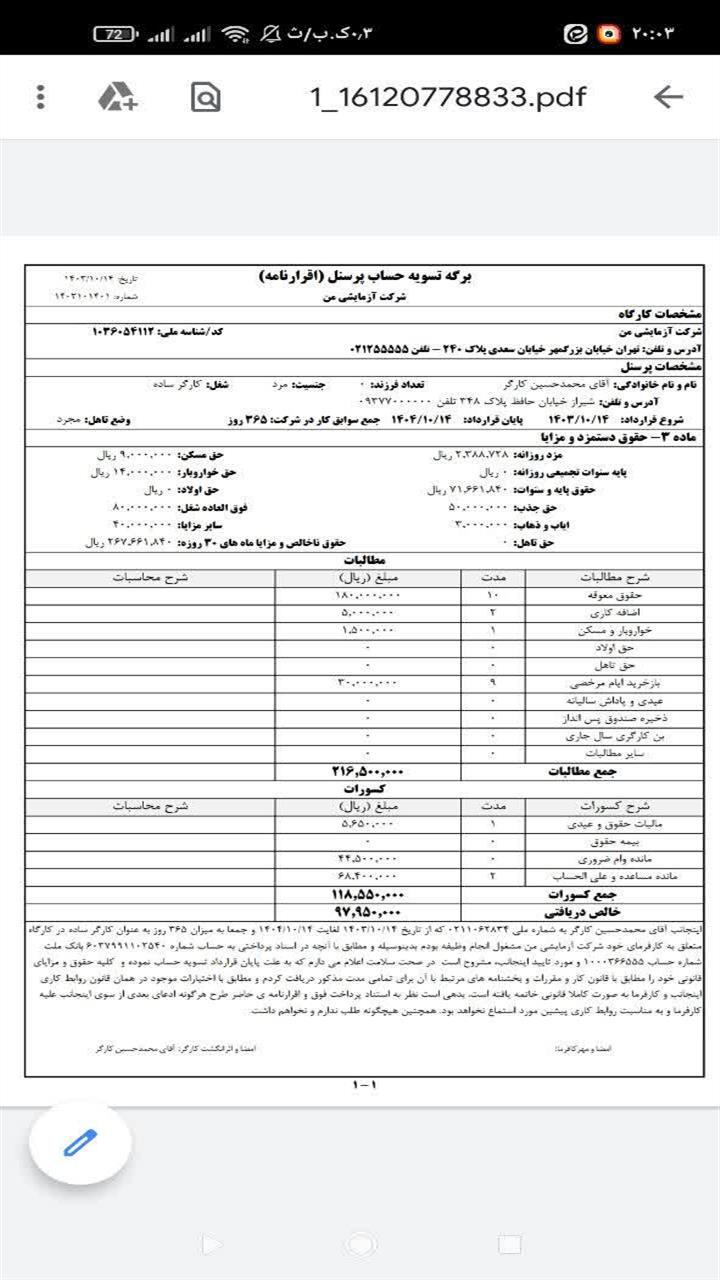 ۲۰:۰۳ ۰٫۳ک.ب/ث 72
1_16120778833.pdf
برگه تسویه حساب پرسنل (اقرارنامه)
تاریخ: ۱۴۰۳/۱۰/۱۴
شرکت آزمایشی من
شماره: ۱۴۰۲۱۰۱۴۰۱
مشخصات کارگاه
شرکت آزمایشی من کد/شناسه ملی: ۱۰۳۶۰۵۴۱۱۲
آدرس و تلفن: تهران خیابان بزرگمهر خیابان سعدی پلاک ۲۴۰ – تلفن ۰۲۱۲۵۵۵۵۵
مشخصات پرسنل
نام و نام خانوادگی: آقای محمدحسین کارگر تعداد فرزند: ۰ جنسیت: مرد شغل: کارگر ساده
آدرس و تلفن: شیراز خیابان حافظ پلاک ۳۴۸ تلفن ۰۹۳۷۷۰۰۰۰۰۰
شروع قرارداد: ۱۴۰۳/۱۰/۱۴ پایان قرارداد: ۱۴۰۴/۱۰/۱۴ جمع سوابق کار در شرکت: ۳۶۵ روز وضع تاهل: مجرد
ماده ۳– حقوق دستمزد و مزایا
مزد روزانه: ۲,۳۸۸,۷۲۸ ریال حق مسکن: ۹,۰۰۰,۰۰۰ ریال
پایه سنوات تجمیعی روزانه: ۰ ریال حق خواروبار: ۱۴,۰۰۰,۰۰۰ ریال
حقوق پایه و سنوات: ۷۱,۶۶۱,۸۴۰ ریال حق اولاد: ۰ ریال
حق جذب: ۵۰,۰۰۰,۰۰۰ فوق العاده شغل: ۸۰,۰۰۰,۰۰۰
ایاب و ذهاب: ۳,۰۰۰,۰۰۰ سایر مزایا: ۴۰,۰۰۰,۰۰۰
حق تاهل: ۰ حقوق ناخالص و مزایا ماه های ۳۰ روزه: ۲۶۷,۶۶۱,۸۴۰ ریال
مطالبات
شرح مطالبات مدت مبلغ (ریال) شرح محاسبات
حقوق معوقه ۱۰ ۱۸۰,۰۰۰,۰۰۰
اضافه کاری ۲ ۵,۰۰۰,۰۰۰
خواروبار و مسکن ۱ ۱,۵۰۰,۰۰۰
حق اولاد ۰ ۰
حق تاهل ۰ ۰
بازخرید ایام مرخصی ۹ ۳۰,۰۰۰,۰۰۰
عیدی و پاداش سالیانه ۰ ۰
ذخیره صندوق پس انداز ۰ ۰
بن کارگری سال جاری ۰ ۰
سایر مطالبات ۰ ۰
جمع مطالبات ۲۱۶,۵۰۰,۰۰۰
کسورات
شرح کسورات مدت مبلغ (ریال) شرح محاسبات
مالیات حقوق و عیدی ۱ ۵,۶۵۰,۰۰۰
بیمه حقوق ۰ ۰
مانده وام ضروری ۰ ۴۴,۵۰۰,۰۰۰
مانده مساعده و علی الحساب ۲ ۶۸,۴۰۰,۰۰۰
جمع کسورات ۱۱۸,۵۵۰,۰۰۰
خالص دریافتی ۹۷,۹۵۰,۰۰۰
اینجانب آقای محمدحسین کارگر به شماره ملی ۰۲۱۱۰۶۲۸۳۴ که از تاریخ ۱۴۰۳/۱۰/۱۴ لغایت ۱۴۰۴/۱۰/۱۴ و جمعا به میزان ۳۶۵ روز به عنوان کارگر ساده در کارگاه
متعلق به کارفرمای خود شرکت آزمایشی من مشغول انجام وظیفه بودم بدینوسیله و مطابق با آنچه در اسناد پرداختی به حساب شماره ۶۰۳۷۹۹۱۱۰۲۵۴۰ بانک ملت
شماره حساب ۱۰۰۰۳۶۶۵۵۵ و مورد تایید اینجانب، مشروح است. در صحت سلامت اعلام می دارم که به علت پایان قرارداد تسویه حساب نموده و کلیه حقوق و مزایای
قانونی خود را مطابق با قانون کار و مقررات و بخشنامه های مرتبط با آن برای تمامی مدت مذکور دریافت کردم و مطابق با اختیارات موجود در همان قانون روابط کاری
اینجانب و کارفرما به صورت کاملا قانونی خاتمه یافته است. بدهی است نظر به استناد پرداخت فوق و اقرارنامه ی حاضر طرح هرگونه ادعای بعدی از سوی اینجانب علیه
کارفرما و به مناسبت روابط کاری پیشین مورد استماع نخواهد بود. همچنین هیچگونه طلب ندارم و نخواهم داشت.
امضا و مهرکافرما: امضا و اثرانگشت کارگر: آقای محمدحسین کارگر
۱-۱